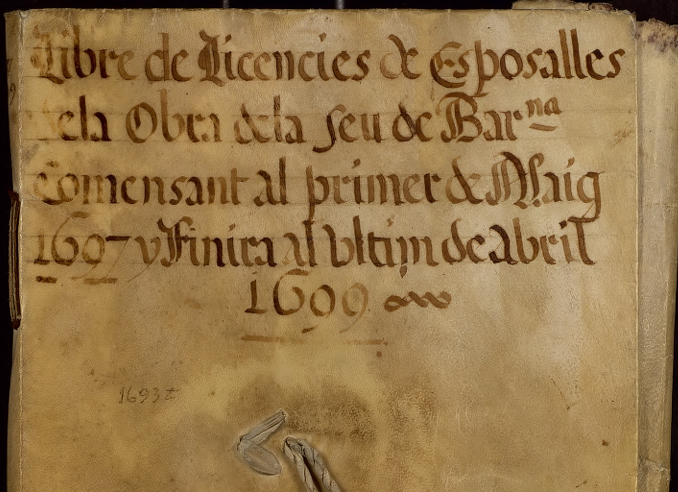 Libre de Licencies de Esposalles
dela Obra dela Seu de Barna
Comensant al primer de Maig
1697 y Finira al Ultim de Abril
1699